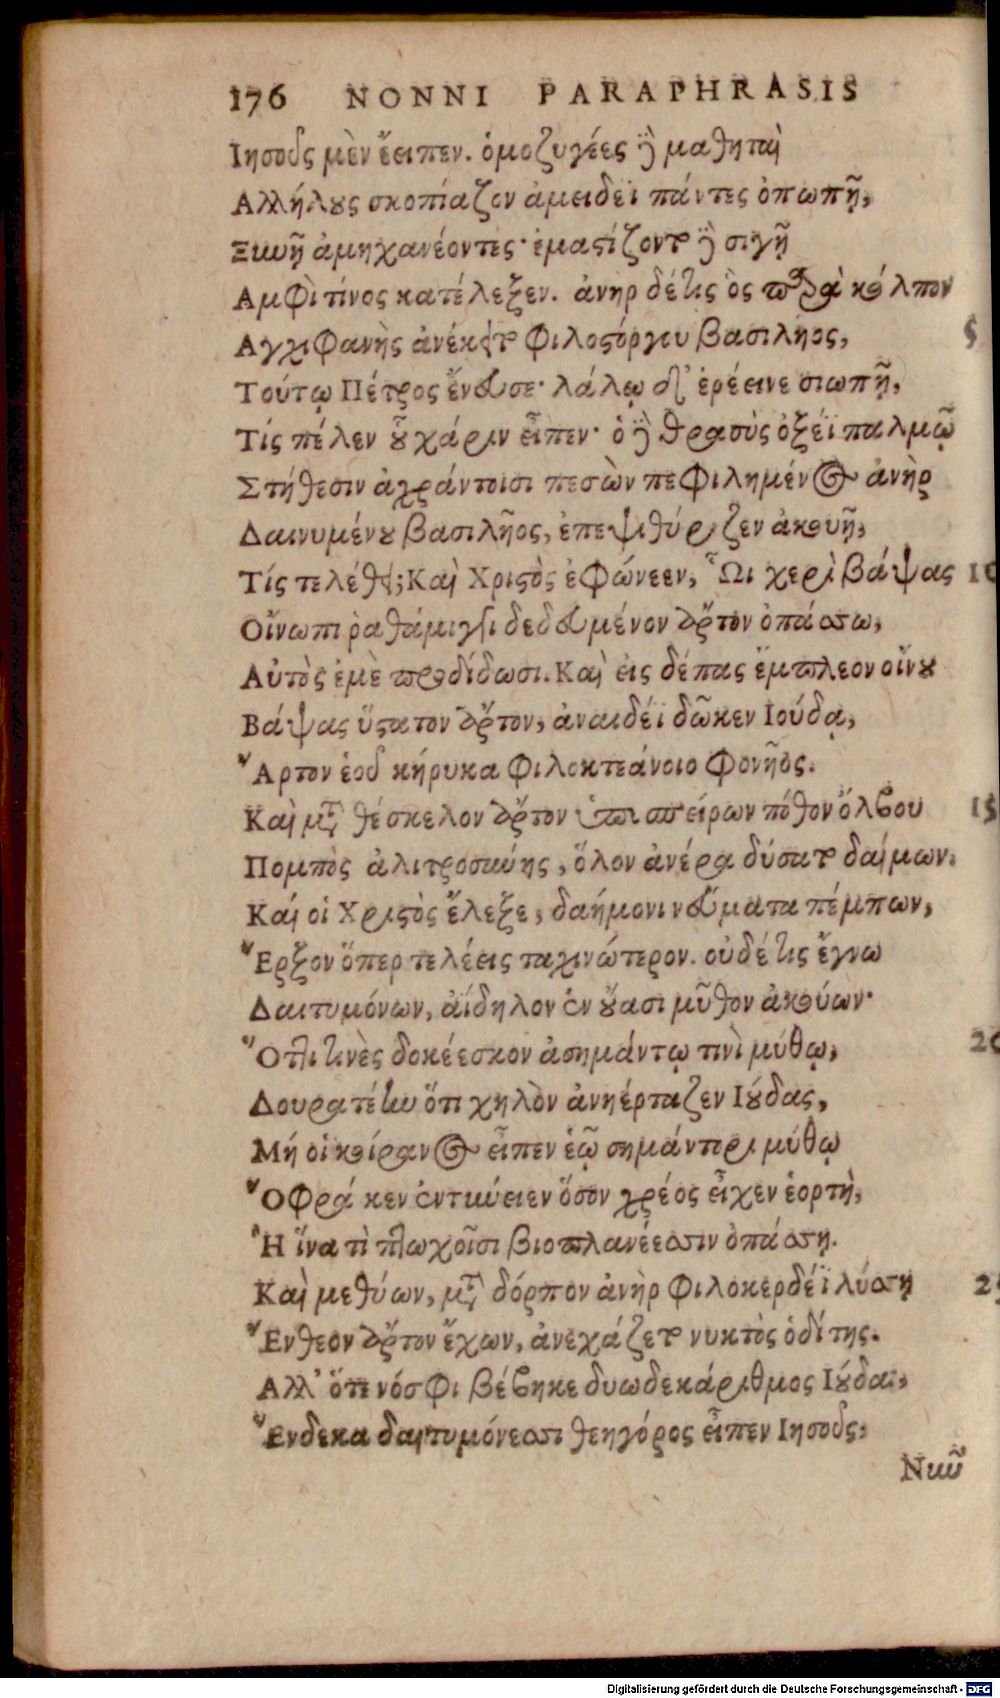 176 NONNI PARAPHRASIS
Ιησοῦς μὲν ἔειπεν. ὁμοζυγέες ἢ μαθηταὶ
Αλλήλους σκοπίαζον ἀμειδέϊ πάντες ὀπωπῇ,
Ξυνῇ ἀμηχανέοντες· ἐμαστίζοντο ἢ σιγῇ
Αμφὶ τίνος κατέλεξεν. ἀνὴρ δέ τις ὃς παρὰ κόλπον
Αγχιφανὴς ἀνέκειτο φιλοστόργου βασιλῆος, 5
Τούτῳ Πέτρος ἔνευσε· λάλῳ δ' ἐρέεινε σιωπῇ,
Τίς πέλεν οὗ χάριν εἶπεν· ὁ ἢ θρασὺς ὀξέϊ παλμῷ
Στήθεσιν ἀχράντοισι πεσὼν πεφιλημένος ἀνὴρ
Δαινυμένου βασιλῆος, ἐπεψιθύριζεν ἀκουῇ,
Τίς τελέθει; Καὶ Χριστὸς ἐφώνεεν, Ὧι χερὶ βάψας 10
Οἴνωπι ῥαθάμιγγι δεδευμένον ἄρτον ὀπάσσω,
Αὐτὸς ἐμὲ προδίδωσι. Καὶ εἰς δέπας ἔμπλεον οἴνου
Βάψας ὕστατον ἄρτον, ἀναιδέϊ δῶκεν Ιούδᾳ,
Ἄρτον ἑοῦ κήρυκα φιλοκτεάνοιο φονῆος.
Καὶ μετὰ θέσκελον ἄρτον ὑποσπείρων πόθον ὄλβου 15
Πομπὸς ἀλιτροσύνης, ὅλον ἀνέρα δύσατο δαίμων.
Καί οἱ Χριστὸς ἔλεξε, δαήμονι νεύματα πέμπων,
Ἔρξον ὅπερ τελέεις ταχινώτερον. οὐδέ τις ἔγνω
Δαιτυμόνων, ἀΐδηλον ἐν οὔασι μῦθον ἀκούων·
Ὅττι τινὲς δοκέεσκον ἀσημάντῳ τινὶ μύθῳ, 20
Δουρατέην ὅτι χηλὸν ἀνηέρταζεν Ιούδας,
Μή οἱ κοίρανος εἶπεν ἑῷ σημάντορι μύθῳ
Ὄφρά κεν ἐντύνειεν ὅσον χρέος εἶχεν ἑορτὴ,
Ἢ ἵνα τὶ πτωχοῖσι βιοπλανέεσσιν ὀπάσσῃ.
Καὶ μεθύων, μετὰ δόρπον ἀνὴρ φιλοκερδέϊ λύσσῃ 25
Ἔνθεον ἄρτον ἔχων, ἀνεχάζετο νυκτὸς ὁδίτης.
Αλλ' ὅτε νόσφι βέβηκε δυωδεκάριθμος Ιούδας,
Ἕνδεκα δαιτυμόνεσσι θεηγόρος εἶπεν Ιησοῦς,
Νῦν
Digitalisierung gefördert durch die Deutsche Forschungsgemeinschaft - DFG